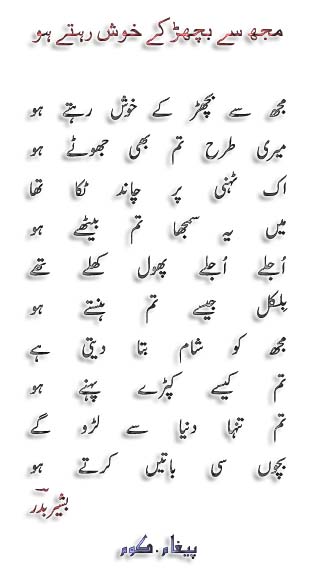 مجھ سے بچھڑ کے خوش رہتے ہو
مجھ سے بچھڑ کے خوش رہتے ہو
میری طرح تم بھی جھوٹے ہو
اک ٹہنی پر چاند ٹکا تھا
میں یہ سمجھا تم بیٹھے ہو
اُجلے اُجلے پھول کھلے تھے
بلکل جیسے تم ہنستے ہو
مجھ کو شام بتا دیتی ہے
تم کیسے کپڑے پہنے ہو
تم تنہا دنیا سے لڑو گے
بچوں سی باتیں کرتے ہو
بشیر بدر
پیغام.کوم